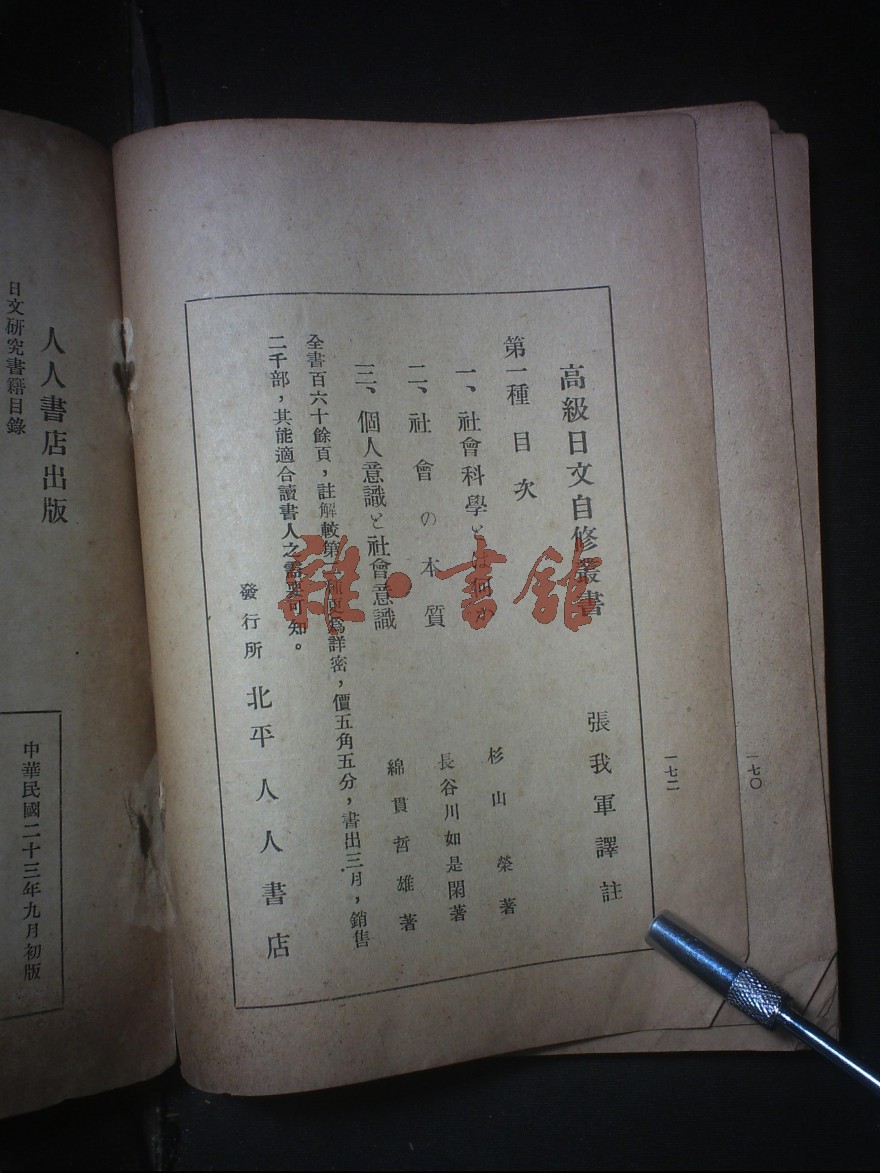 一七〇
一七二
高級日文自修叢書
張我軍譯註
第一種目次
一、社會科學とは何か 杉山榮著
二、社會の本質 長谷川如是閑著
三、個人意識と社會意識 綿貫哲雄著
全書百六十餘頁，註解較第一種更爲詳密，價五角五分，書出三月，銷售
二千部，其能適合讀書人之需要可知。
發行所 北平人人書店
雜·書館
人人書店出版
日文研究書籍目錄
中華民國二十三年九月初版